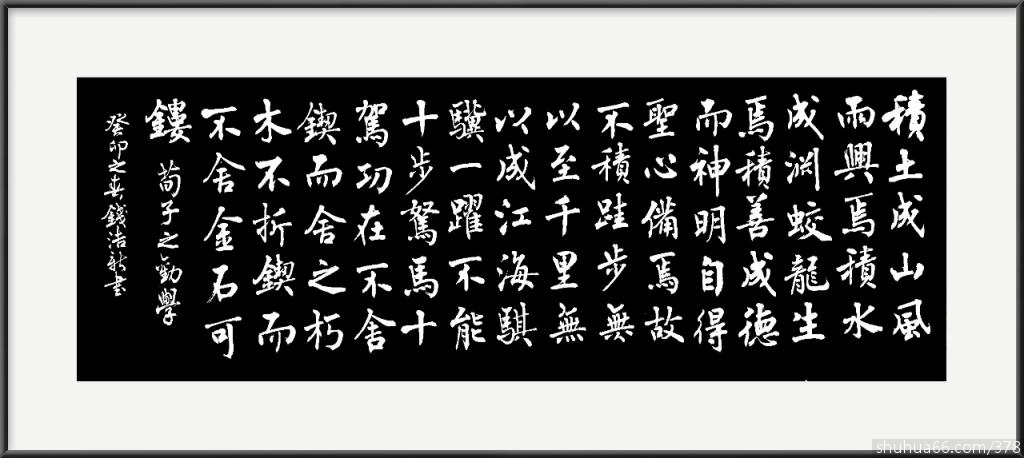 積土成山風
雨興焉積水
成渊蛟龍生
焉積善成德
而神明自得
聖心備焉故
不積跬步無
以至千里無
以成江海騏
驥一躍不能
十步駑馬十
駕功在不舍
鍥而舍之朽
木不折鍥而
不舍金石可
鏤 荀子之勸學
癸卯之春錢浩書
shuhua66.com/378